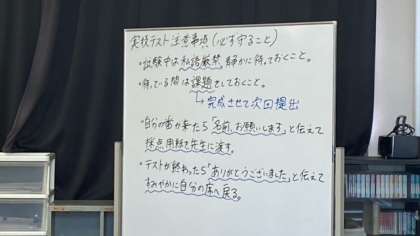 実技テスト注意事項(必ず守ること)
・試験中は私語厳禁。静かに待っておくこと。
・待っている間は課題をしておくこと。
↳完成させて次回提出
・自分の番が来たら「名前、お願いします」と伝えて
採点用紙を先生に渡す。
・テストが終わったら「ありがとうございました」と伝えて
すみやかに自分の席へ戻る。